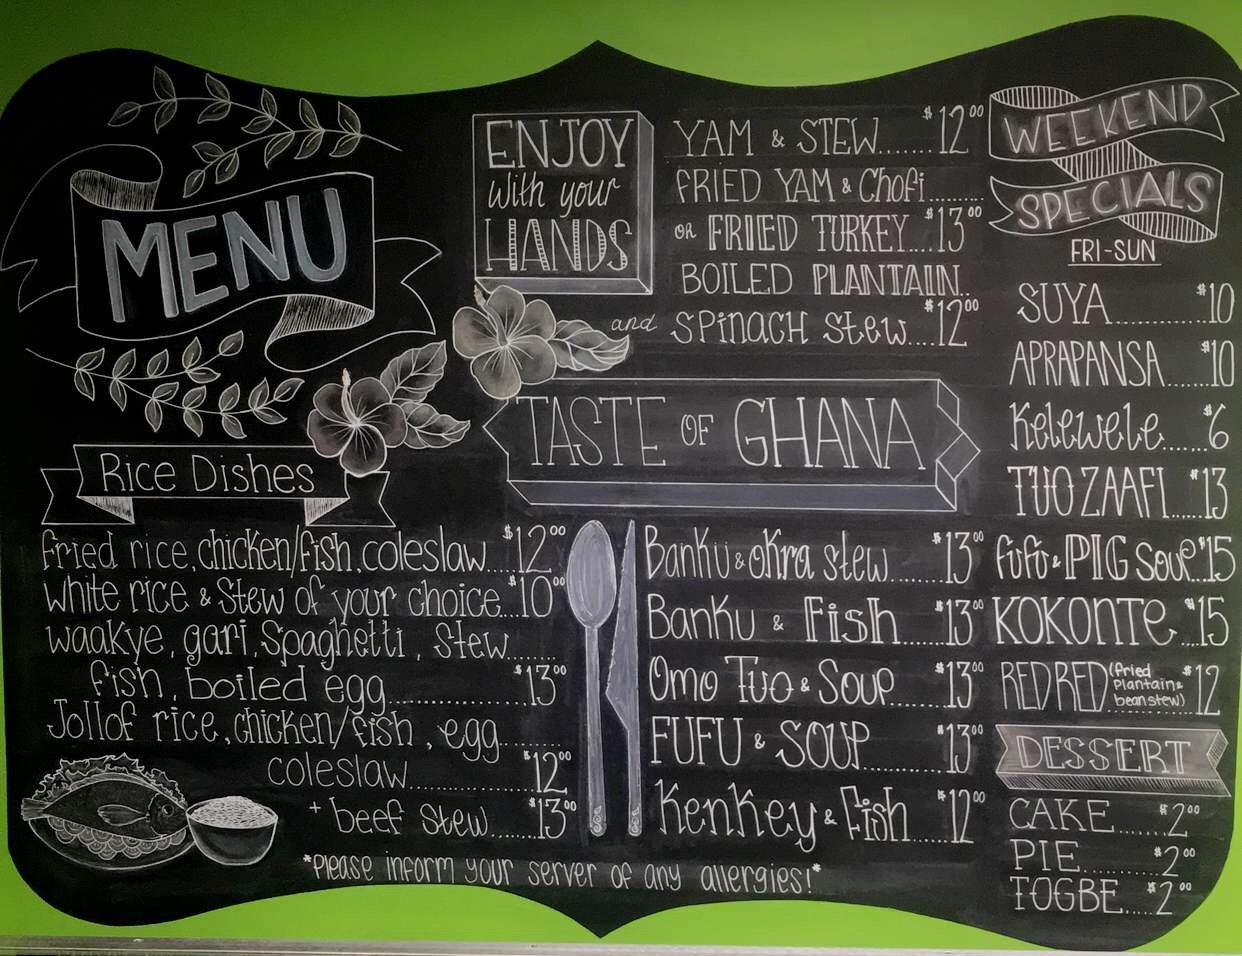 MENU
Rice Dishes
fried rice, chicken/fish, coleslaw....$12.00
white rice & Stew of your choice...$10.00
waakye, gari, Spaghetti, Stew.......
fish, boiled egg..................$13.00
Jollof rice, chicken/fish, egg........
coleslaw..................$12.00
+ beef stew......$13.00
*Please inform your server of any allergies!*
ENJOY
with your
HANDS
YAM & STEW.......$12.00
FRIED YAM & Chofi..........
or FRIED TURKEY....$13.00
BOILED PLANTAIN..
and SPINACH Stew....$12.00
TASTE OF GHANA
Banku & okra stew........$13.00
Banku & Fish......$13.00
Omo Tuo & Soup......$13.00
FUFU & SOUP............$13.00
Kenkey & Fish.......$12.00
WEEKEND
SPECIALS
FRI-SUN
SUYA..............$10
APRAPANSA......$10
Kelewele......$6
TUO ZAAFI......$13
fufu & PIG Soup..$15
KOKONTE...$15
RED RED (fried
Plantain &
bean stew) $12
DESSERT
CAKE.......$2.00
PIE............$2.00
TOGBE.....$2.00